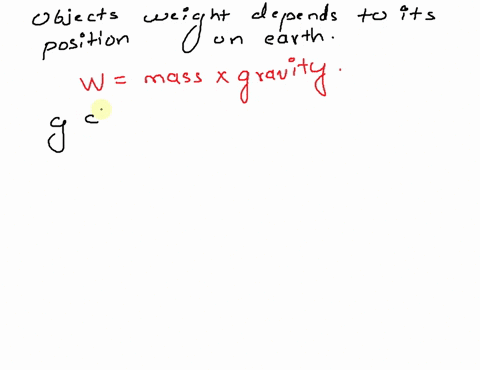 objects weight depends to its
position on earth.
W = mass x gravity.
g c